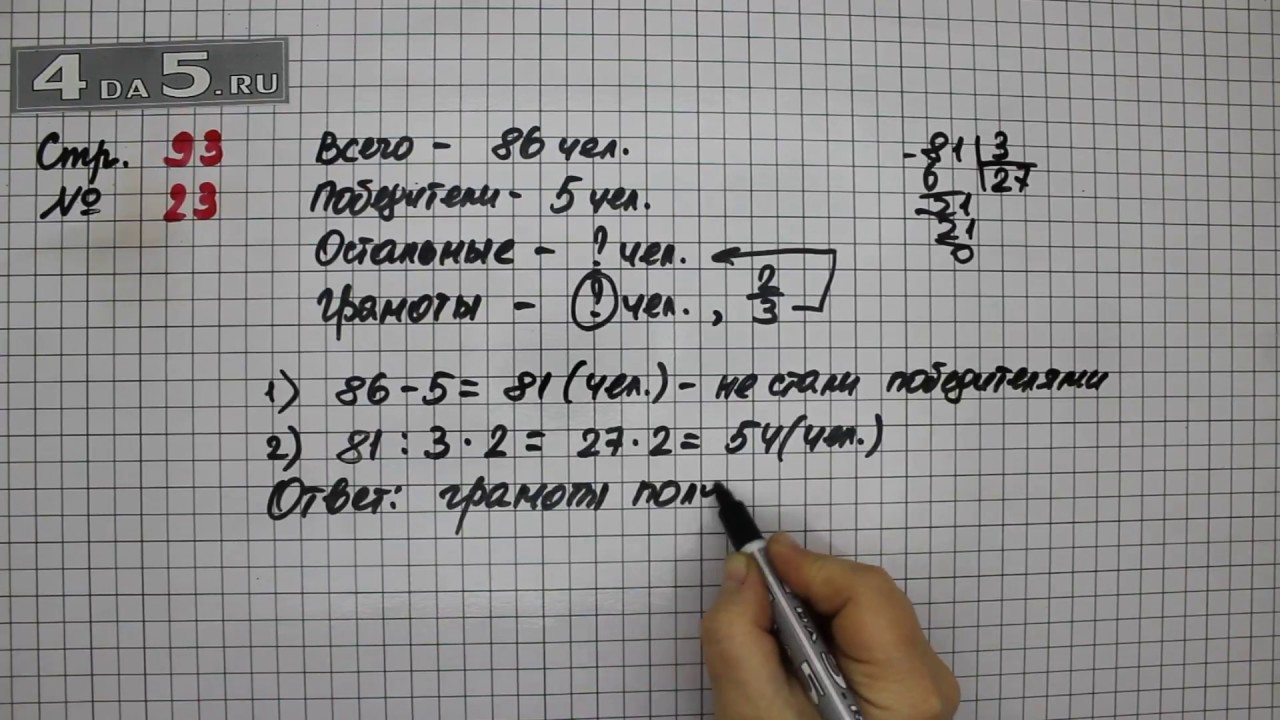 4 DA 5.RU
Стр. 93
№ 23
Всего - 86 чел.
Победители - 5 чел.
Остальные - ? чел.
Грамоты - ? чел., 2/3
- 81 | 3
6 | 27
- 21
21
0
1) 86 - 5 = 81 (чел.) - не стали победителями
2) 81 : 3 · 2 = 27 · 2 = 54 (чел.)
Ответ: грамоты полу